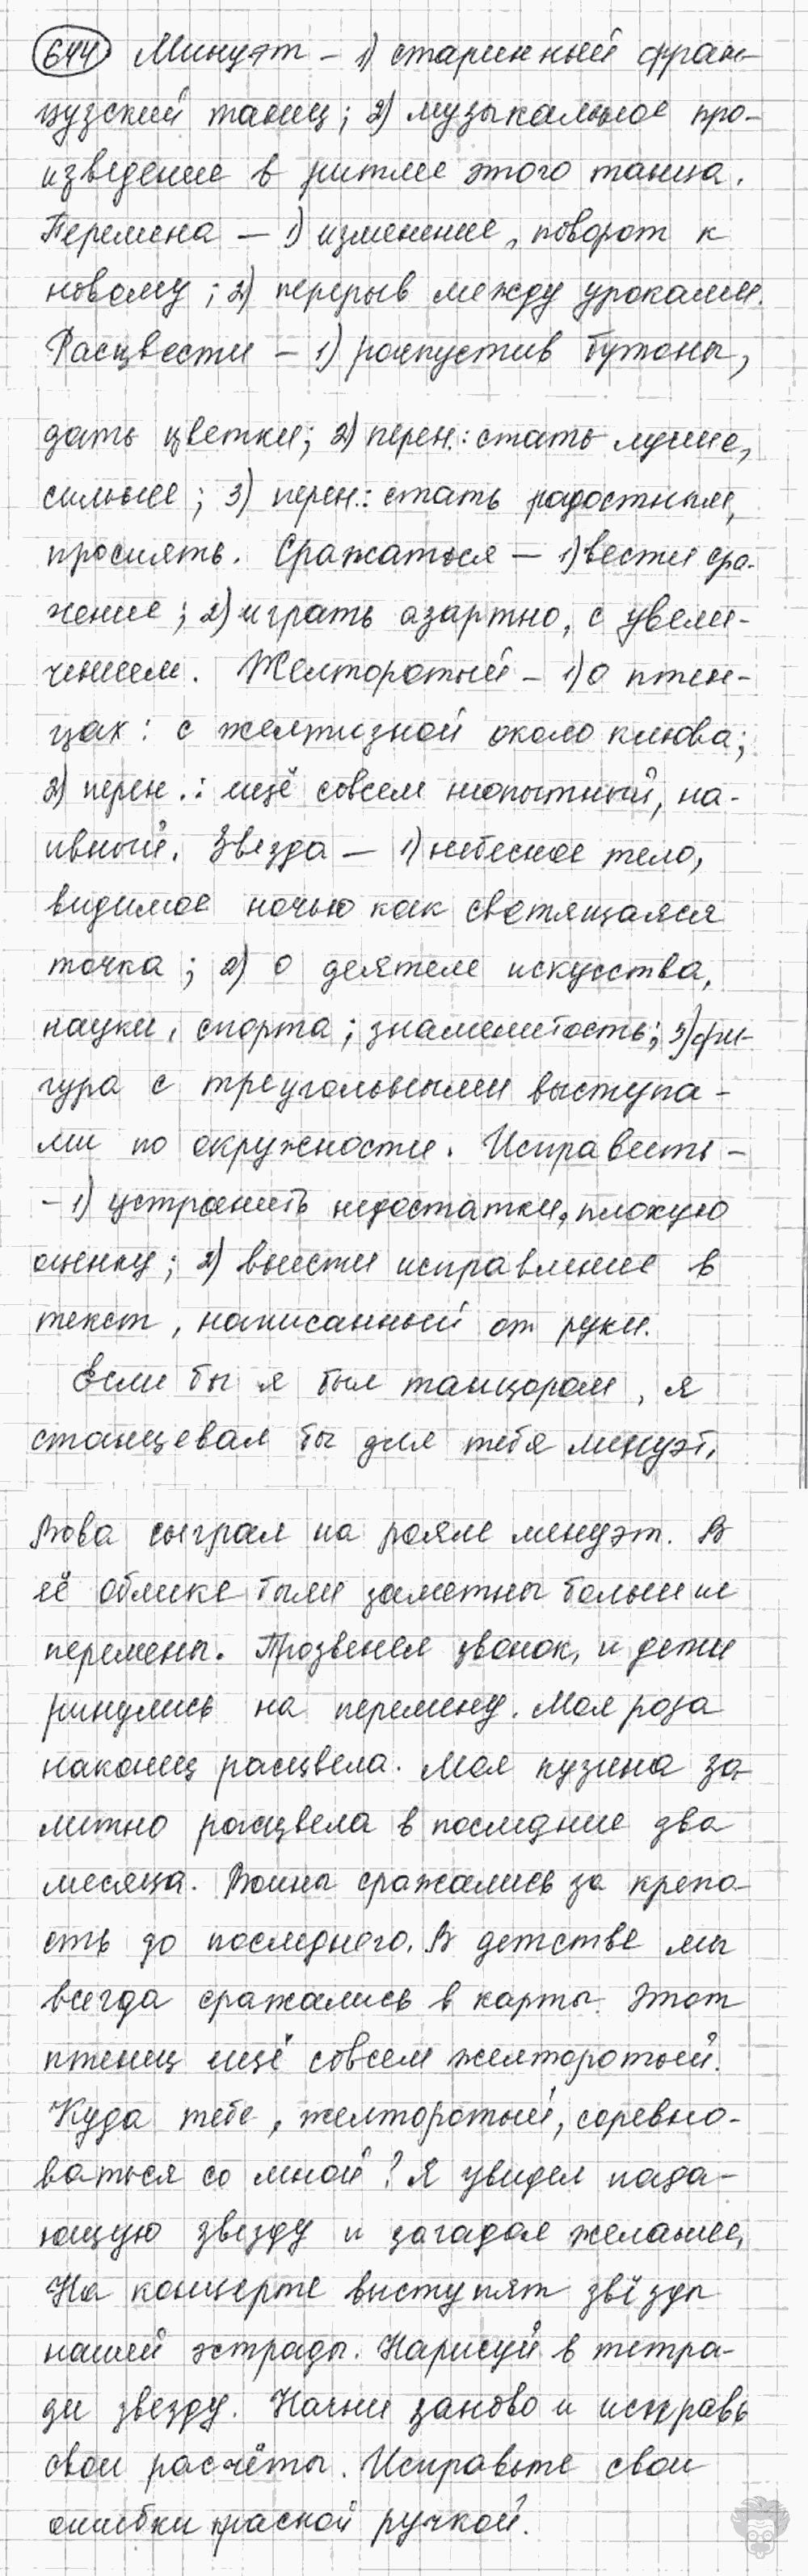 644 Минуэт – 1) старинный фран-
цузский танец; 2) музыкальное про-
изведение в ритме этого танца.
Перемена – 1) изменение, поворот к
новому; 2) перерыв между уроками.
Расцвести – 1) распустив бутоны,
дать цветки; 2) перен.: стать лучше,
сильнее; 3) перен.: стать радостным,
просиять. Сражаться – 1) вести сра-
жение; 2) играть азартно, с увели-
чением. Желторотый – 1) о птен-
цах: с желтизной около клюва;
2) перен.: ещё совсем неопытный, на-
ивный. Звезда – 1) небесное тело,
видимое ночью как светящаяся
точка; 2) о деятеле искусства,
науки, спорта; знаменитость; 3) фи-
гура с треугольными выступа-
ми по окружности. Исправить –
– 1) устранить недостатки, плохую
оценку; 2) внести исправление в
текст, написанный от руки.
Если бы я был танцором, я
станцевал бы для тебя минуэт.
Вова сыграл на рояле менуэт. В
её облике были заметны большие
перемены. Прозвенел звонок, и дети
ринулись на перемену. Моя роза
наконец расцвела. Моя кузина за-
метно расцвела в последние два
месяца. Воины сражались за крепо-
сть до последнего. В детстве мы
всегда сражались в карты. Этот
птенец ещё совсем желторотый.
Куда тебе, желторотый, соревно-
ваться со мной? Я увидел пада-
ющую звезду и загадал желание.
На концерте выступят звёзды
нашей эстрады. Нарисуй в тетра-
ди звезду. Начни заново и исправь
свои расчёты. Исправьте свои
ошибки красной ручкой.